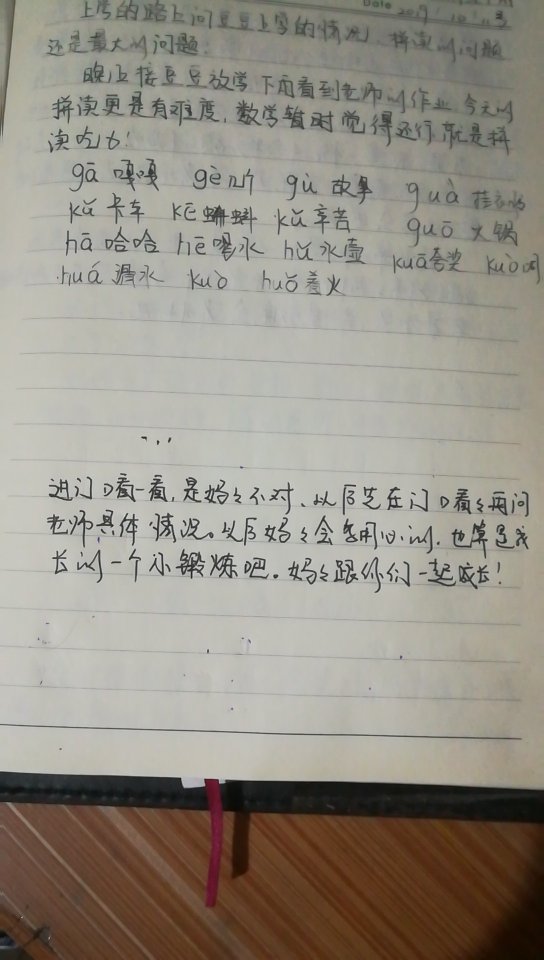 Date 2019.10.11
上学的路上问豆豆上学的情况，拼读的问题
还是最大的问题.
晚上接豆豆放学下雨看到老师的作业 今天的
拼读更是有难度，数学暂时觉得还行就是拼
读吃力！
gā 嘎嘎 gè 个 gù 故事 guà 挂衣
kǎ 卡车 kē 蝌蚪 kǔ 辛苦 guō 火锅
hā 哈哈 hē 喝水 hú 水壶 kuā夸奖 kuò
huá 滑水 kuò huǒ 着火
进门口看一看，是妈妈不对，以后先在门口看看再问
老师具体情况。以后妈妈会多用心的，也算是成
长的一个小锻炼吧。妈妈跟你们一起成长！